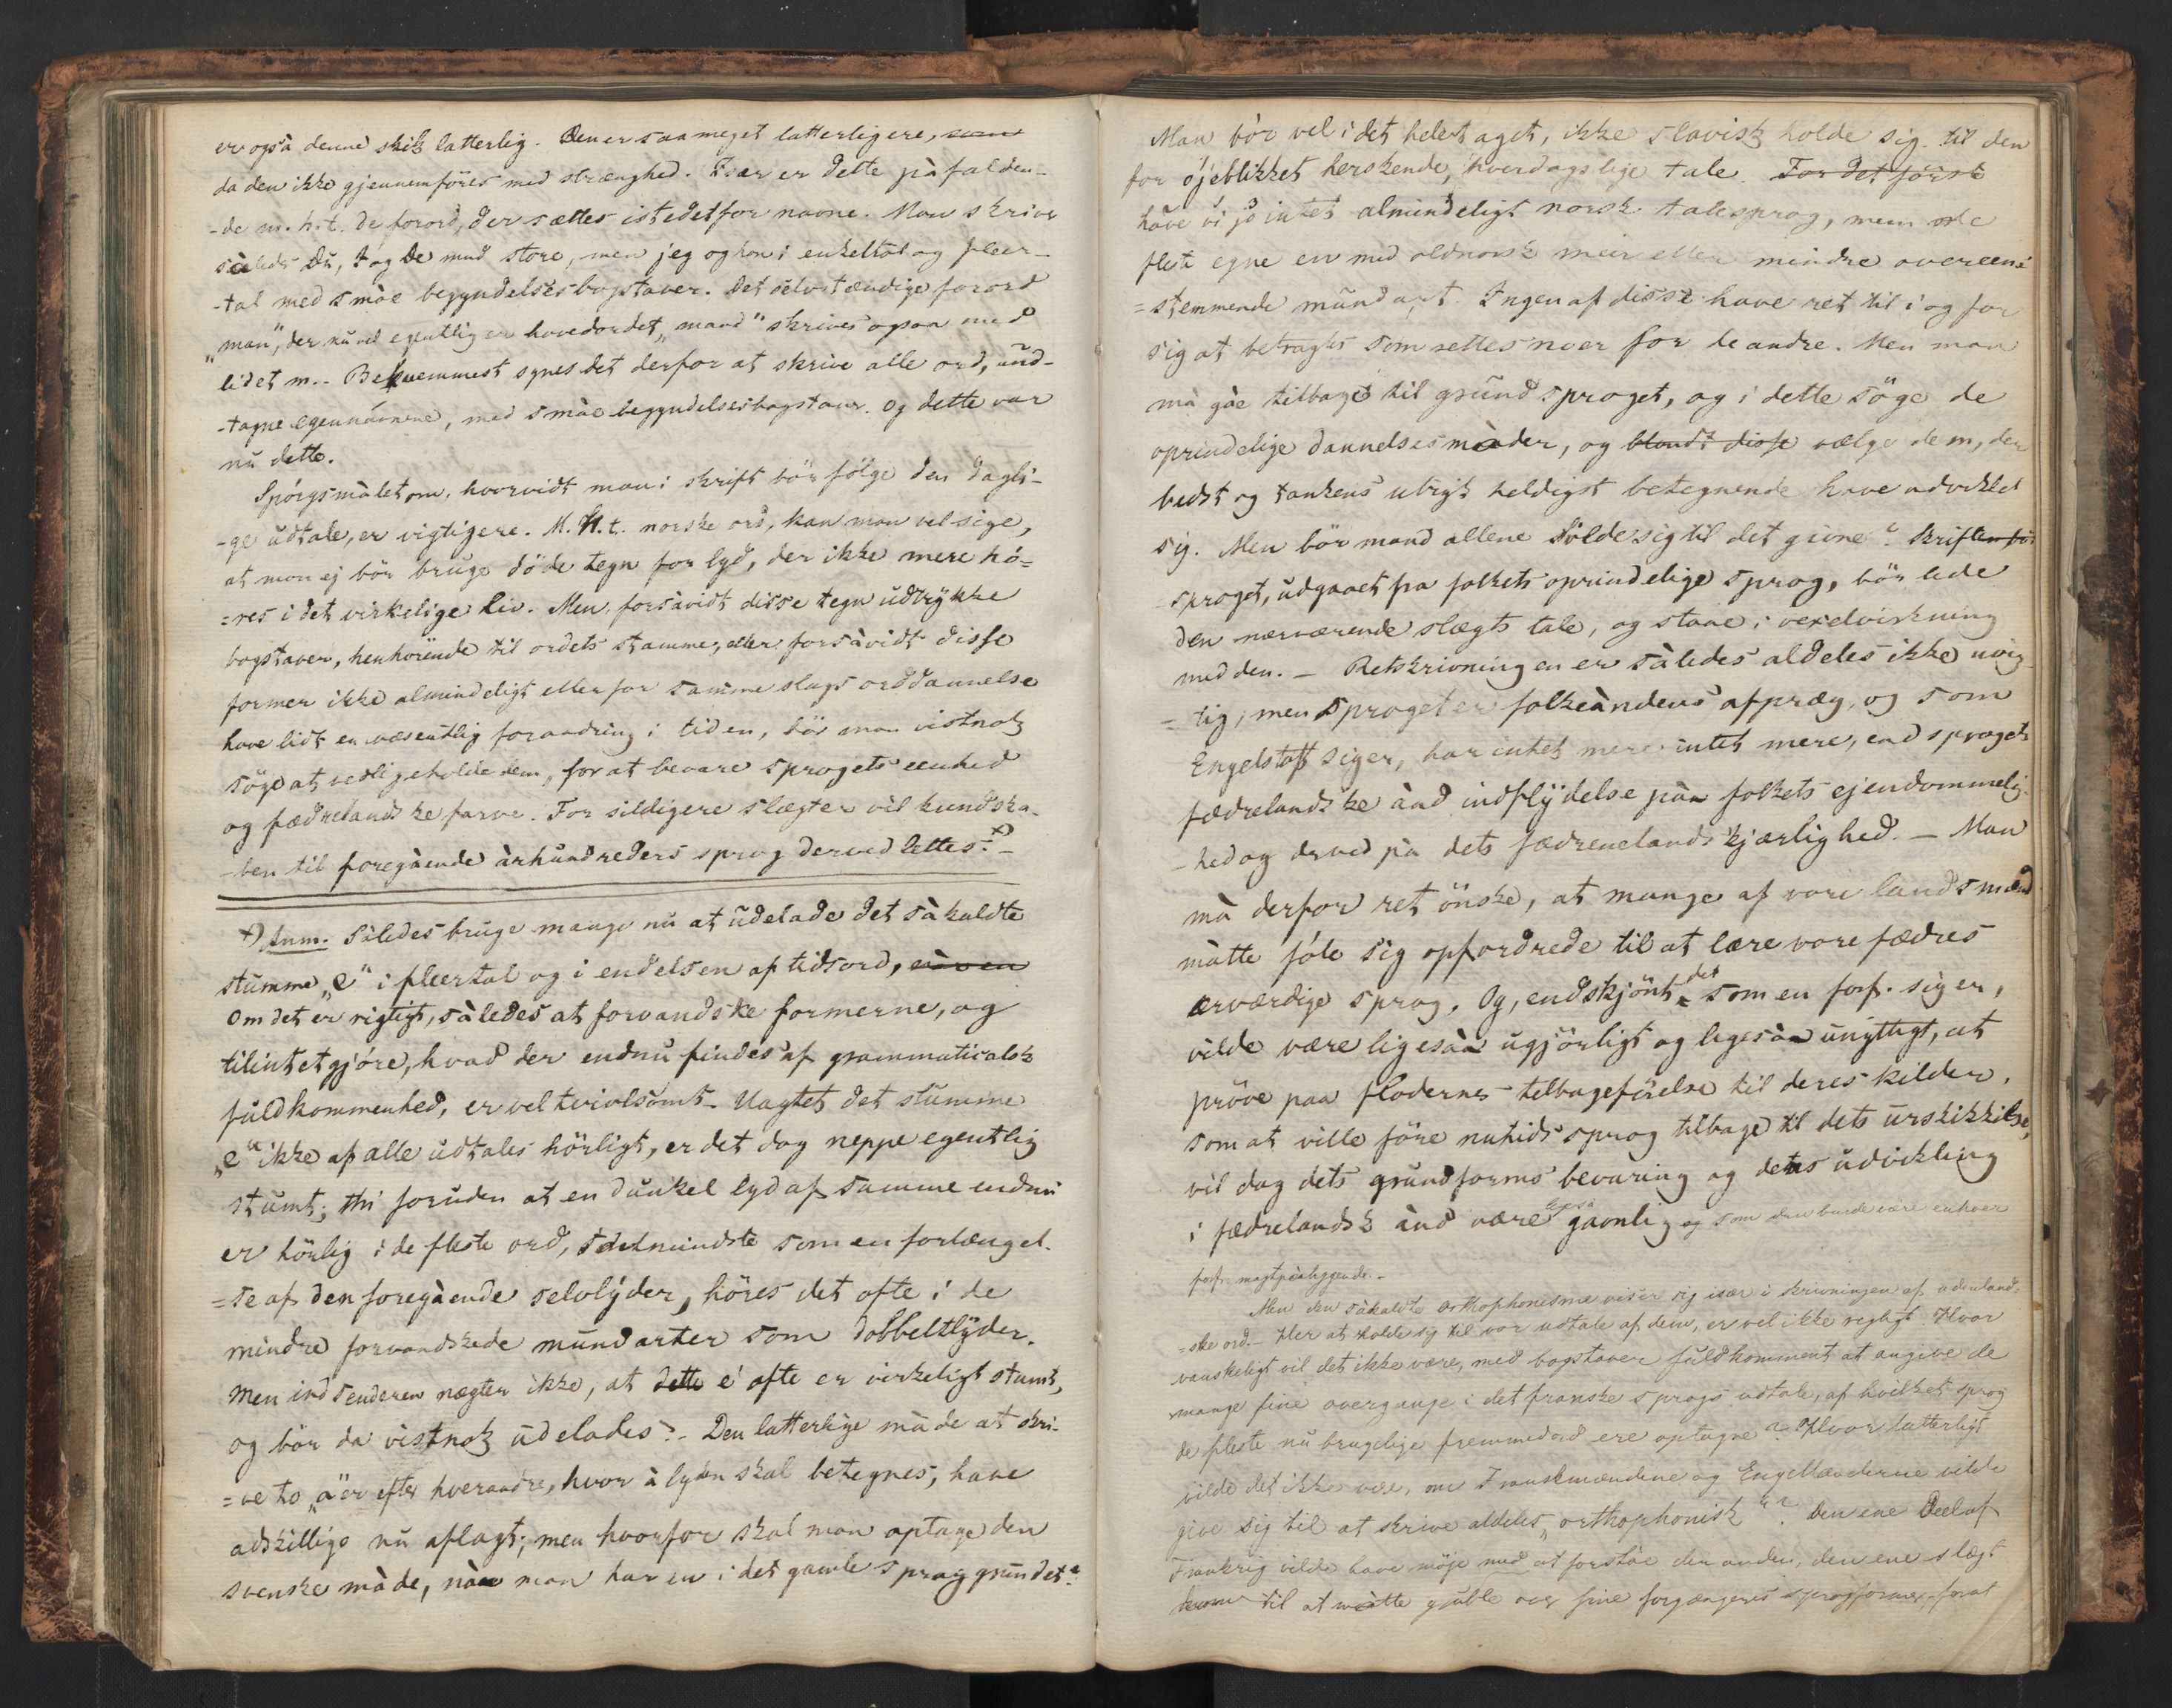 er også denne skik latterlig. Den er saa meget latterligere, som
da den ikke gjennemføres med strænghed. Især er dette påfalden-
-de m. h. t. de forord, der sættes istedetfor navne. Man skriver
således Du, I og De med store, men jeg og hen i enkeltal og fleer-
-tal med småe begyndelsesbogstaver. Det selvstændige forord
"man", der nu vel egentlig er hovedordet "mand" skrives ogsaa med
lidet m. - Bekvemmest synes det derfor at skrive alle ord, und-
-tagne egennavnene, med småe begyndelsesbogstaver. Og dette var
nu dette.
Spörgsmålet om, hvorvidt man i skrift bör fölge den dagli-
-ge udtale, er vigtigere. M. H. t. norske ord, kan man vel sige,
at man ej bör bruge döde tegn for lyd, der ikke mere hö=
=res i det virkelige liv. Men, forsåvidt disse tegn udtrykke
bogstaver, henhörende til ordets stamme, eller forsåvidt disse
former ikke almindeligt eller for samme slags orddannelse
have lidt en væsentlig forandring i tiden, bör man vistnok
söge at vedligeholde dem, for at bevare sprogets eenhed
og fædrelandske farve. For sildigere slægter vil kundska-
-ben til foregående århundreders sprog derved lettes. x) -
x) Anm. Således bruge mange nu at udelade det såkaldte
stumme "e" i fleertal og i endelsen af tidsord,
Om det er rigtigt, således at forvandske formerne, og
tilintetgjöre, hvad der endnu findes af grammaticalsk
fuldkommenhed, er vel tvivlsomt. Uagtet det stumme
"e" ikke af alle udtales hörligt, er det dog neppe egentlig
stumt; thi foruden at en dunkel lyd af samme endnu
er hörlig i de fleste ord, idetmindste som en forlængel-
=se af den foregående selvlyder, höres det ofte i de
mindre forvandskede mundarter som dobbeltlyder.
Men indsenderen nægter ikke, at dette e ofte er virkeligt stumt,
og bör da vistnok udelades. - Den latterlige måde at skri-
=ve to "a"er efter hverandre, hvor å lyden skal betegnes, have
adskillige nu aflagt; men hvorfor skal man optage den
svenske måde, når man har en i det gamle sprog grundet?
Man bör vel i det heletaget, ikke slavisk holde sig til den
for öjeblikket herskende, hverdagslige tale. For det förste
have vi jo intet almindeligt norsk talesprog, men de
fleste egne en med oldnorsk meir eller mindre overeens
=stemmende mundart. Ingen af disse have ret til i og for
sig at betragtes som rettesnoer for de andre. Men man
må gåe tilbage til grundsproget, og i dette söge de
oprindelige dannelsesmåder, og blandt disse vælge dem, der
bedst og tankens utryk heldigst betegnende have udviklet
sig. Men bör mand allene holde sig til det givne? Skriften bör
sproget, udgaaet fra folkets oprindelige sprog, bör lede
den nærværende slægts tale, og staae i vexelvirkning
med den. - Retskrivningen er således aldeles ikke uvig-
=tig, men sproget er folkeåndens afpræg, og som
Engelstoft siger, har intet mere intet mere, end sprogets
fædrelandske ånd indflydelse påa folkets ejendommelig-
-hed og derved på dets fædrenelandskjærlighed. - Man
må derfor ret önske, at mange af vore landsmænd
måtte föle sig opfordrede til at lære vore fædres
ærværdige sprog. Og, endskjönt det som en forf. siger,
vilde være ligesåa ugjörligt og ligesåa unyttigt, at
pröve paa flodernes tilbageförelse til deres kilder,
som at ville före nutids sprog tilbage til dets urskikkelse,
vil dog dets grundforms bevaring og dets udvikling
i fædrelandsk ånd være også gavnlig og som den burde være enhver
forf. magtpåliggende. -
Men den såkaldte orthophonisme viser sig især i skrivningen af udenland-
=ske ord. - Her at holde sig til vor udtale af dem, er vel ikke rigtigt. Hvor
vanskeligt vil det ikke være, med bogstaver fuldkomment at angive de
mange fine overgange i det franske sprogs udtale, af hvilket sprog
de fleste nu brugelige fremmedord ere optagne? Hvor latterligt
vilde det ikke være, om Franskmændene og Engellænderne vilde
give sig til at skrive aldeles "orthophonisk"? Den ene Deel af
Frankrig vilde have möje med at forståe den anden, den ene slægt
komme til at måtte gruble over sine forgængeres sprogformer, forat